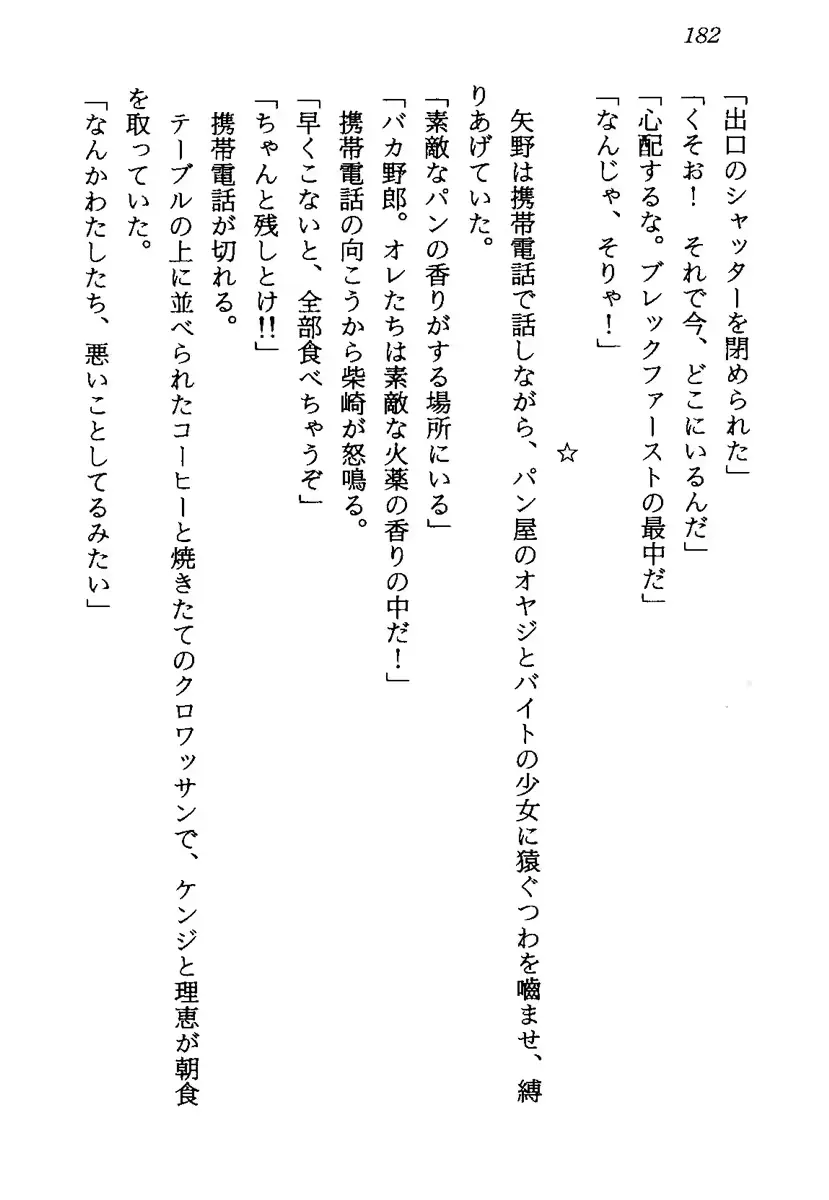 182
「出口のシャッターを閉められた」
「くそお！　それで今、どこにいるんだ」
「心配するな。ブレックファーストの最中だ」
「なんじゃ、そりゃ！」
☆
　矢野は携帯電話で話しながら、パン屋のオヤジとバイトの少女に猿ぐつわを嚙ませ、縛
りあげていた。
「素敵なパンの香りがする場所にいる」
「バカ野郎。オレたちは素敵な火薬の香りの中だ！」
　携帯電話の向こうから柴崎が怒鳴る。
「早くこないと、全部食べちゃうぞ」
「ちゃんと残しとけ!!」
　携帯電話が切れる。
　テーブルの上に並べられたコーヒーと焼きたてのクロワッサンで、ケンジと理恵が朝食
を取っていた。
「なんかわたしたち、悪いことしてるみたい」